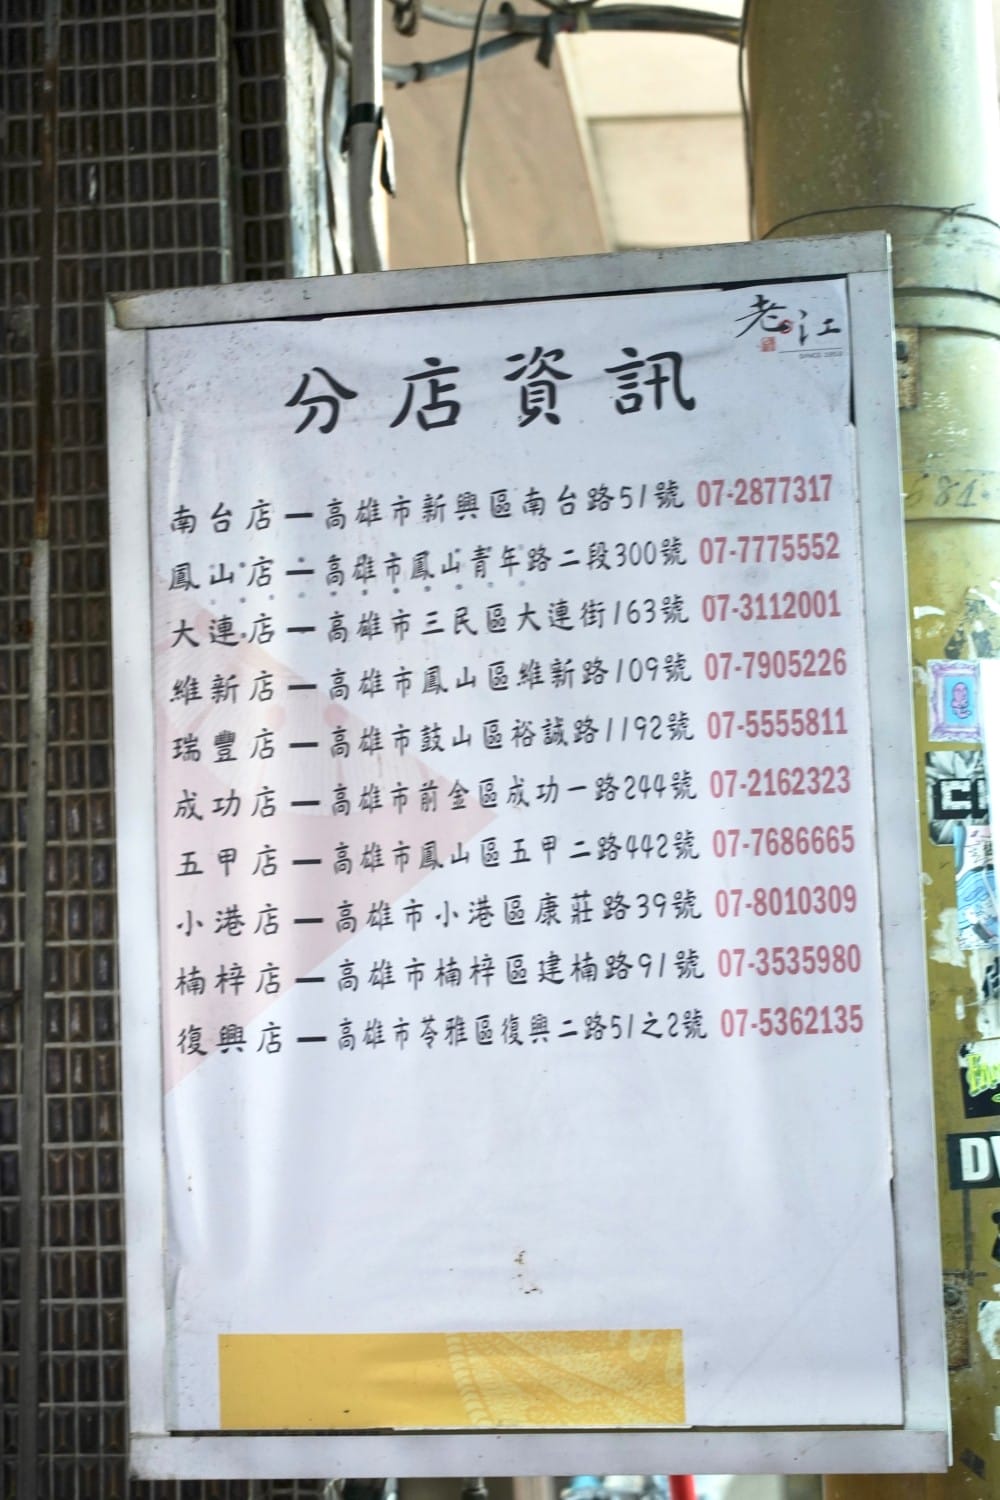 老江
SINCE 1953
分店資訊
南台店一高雄市新興區南台路51號 07-2877317
鳳山店一高雄市鳳山青年路二段300號 07-7775552
大連店一高雄市三民區大連街163號 07-3112001
維新店一高雄市鳳山區維新路109號 07-7905226
瑞豐店一高雄市鼓山區裕誠路1192號 07-5555811
成功店一高雄市前金區成功一路244號 07-2162323
五甲店一高雄市鳳山區五甲二路442號 07-7686665
小港店一高雄市小港區康莊路39號 07-8010309
楠梓店一高雄市楠梓區建楠路91號 07-3535980
復興店一高雄市苓雅區復興二路51之2號 07-5362135